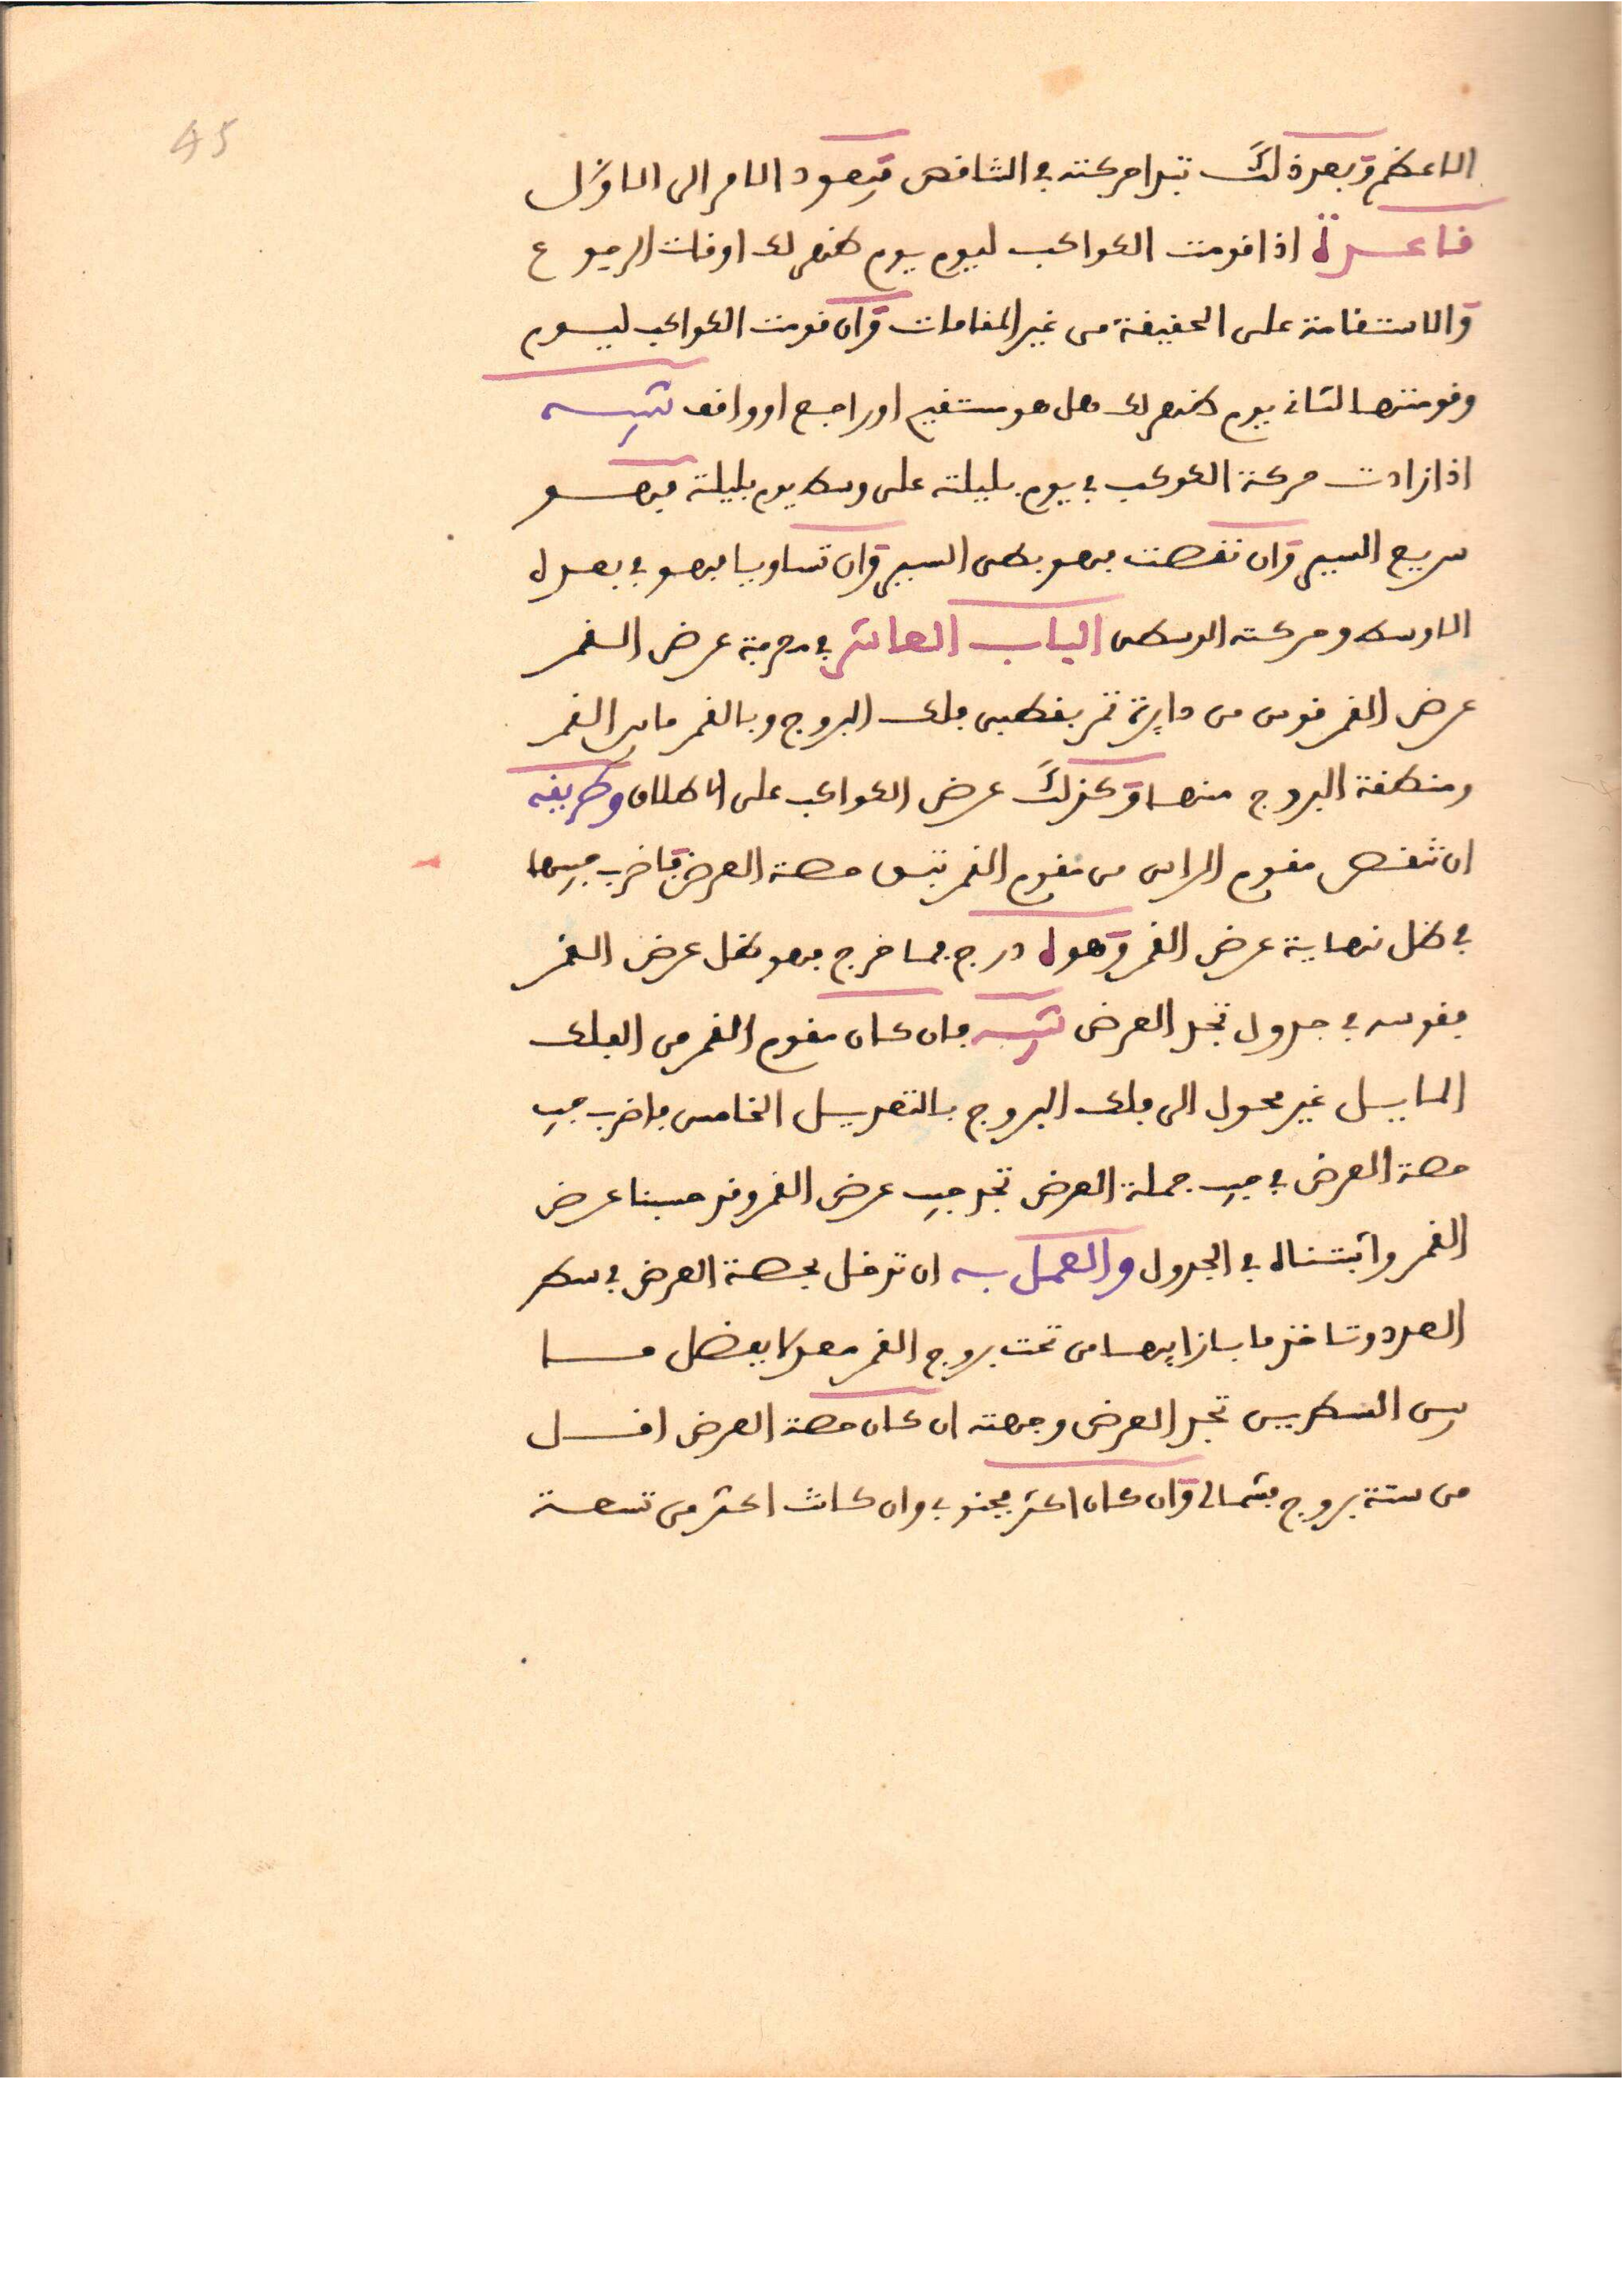 45
الاعظم وبعد ذلك تبدا حركته في التناقص فيعود الامر الى الاول
قاعدة اذا قومت الكواكب ليوم يوم ظهر لك اوقات الرجوع
والاستقامة على الحقيقة من غير المقامات وان قومت الكواكب ليوم
وقومتها لثاني يوم ظهر لك هل هو مستقيم او راجع او واقف تنبيه
اذا زادت حركة الكوكب في يوم بليلته على وسط يوم بليلته فهو
سريع السير وان نقصت فهو بطيء السير وان تساويا فهو في بعده
الاوسط وحركته الوسطى الباب العاشر في معرفة عرض القمر
عرض القمر قوس من دايرة تمر بقطبي فلك البروج وبالقمر ما بين القمر
ومنطقة البروج منها وكذلك عرض الكواكب على الاطلاق وطريقه
ان تنقص مقوم الراس من مقوم القمر تبق حصة العرض فاضرب جيبها
في ظل نهاية عرض القمر وهو ه درج فما خرج فهو ظل عرض القمر
فقوسه في جدول تجد العرض تنبيه فان كان مقوم القمر من الفلك
المايل غير محول الى فلك البروج بالتعديل الخامس فاضرب جيب
حصة العرض في جيب جملة العرض تجد جيب عرض القمر وقد حسبنا عرض
القمر واثبتناه في الجدول والعمل به ان تدخل بحصة العرض في سطر
العدد وتاخذ ما بازايها من تحت بروج القمر معدلا بفضل ما
بين السطرين تجد العرض وجهته ان كان حصة العرض اقل
من ستة بروج فشمالي وان كان اكثر فجنوبي وان كانت اكثر من تسعة